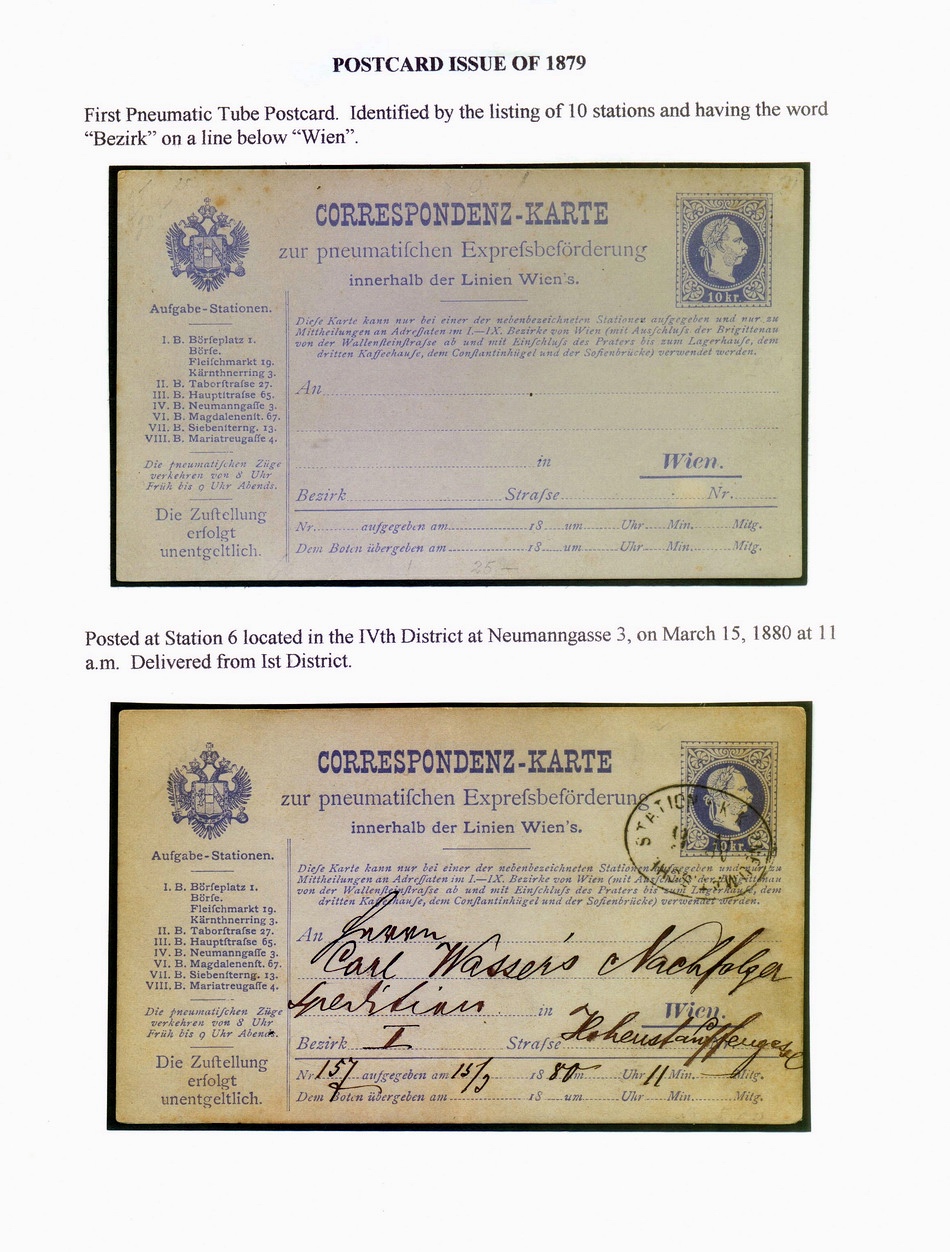 POSTCARD ISSUE OF 1879
First Pneumatic Tube Postcard. Identified by the listing of 10 stations and having the word
“Bezirk” on a line below “Wien”.
CORRESPONDENZ-KARTE
zur pneumatiſchen Expreſsbeförderung
innerhalb der Linien Wien's.
10 kr.
Aufgabe-Stationen.
I. B. Börſeplatz 1.
Börſe.
Fleiſchmarkt 19.
Kärnthnerring 3.
II. B. Taborſtraſse 27.
III. B. Hauptſtraſse 65.
IV. B. Neumanngaſſe 3.
VI. B. Magdalenenſt. 67.
VII. B. Siebenſterng. 13.
VIII. B. Mariatreugaſſe 4.
Die pneumatiſchen Züge
verkehren von 8 Uhr
Früh bis 9 Uhr Abends.
Die Zuſtellung
erfolgt
unentgeltlich.
Dieſe Karte kann nur bei einer der nebenbezeichneten Stationen aufgegeben und nur zu
Mittheilungen an Adreſſaten im I.—IX. Bezirke von Wien (mit Ausſchluſs der Brigittenau
von der Wallenſteinſtraſse ab und mit Einſchluſs des Praters bis zum Lagerhauſe, dem
dritten Kaffeehauſe, dem Conſtantinhügel und der Sofienbrücke) verwendet werden.
An
in Wien.
Bezirk Straſse Nr.
Nr. aufgegeben am 18 um Uhr Min. Mitg.
Dem Boten übergeben am 18 um Uhr Min. Mitg.
25 —
Posted at Station 6 located in the IVth District at Neumanngasse 3, on March 15, 1880 at 11
a.m. Delivered from Ist District.
CORRESPONDENZ-KARTE
zur pneumatiſchen Expreſsbeförderung
innerhalb der Linien Wien's.
10 kr.
STATION
Aufgabe-Stationen.
I. B. Börſeplatz 1.
Börſe.
Fleiſchmarkt 19.
Kärnthnerring 3.
II. B. Taborſtraſse 27.
III. B. Hauptſtraſse 65.
IV. B. Neumanngaſſe 3.
VI. B. Magdalenſt. 67.
VII. B. Siebenſterng. 13.
VIII. B. Mariatreugaſſe 4.
Die pneumatiſchen Züge
verkehren von 8 Uhr
Früh bis 9 Uhr Abends.
Die Zuſtellung
erfolgt
unentgeltlich.
Dieſe Karte kann nur bei einer der nebenbezeichneten Stationen aufgegeben und nur zu
Mittheilungen an Adreſſaten im I.—IX. Bezirke von Wien (mit Ausſchluſs der Brigittenau
von der Wallenſteinſtraſse ab und mit Einſchluſs des Praters bis zum Lagerhauſe, dem
dritten Kaffeehauſe, dem Conſtantinhügel und der Sofienbrücke) verwendet werden.
An Herrn
Carl Wasser's Nachfolger
Spedition in Wien.
Bezirk I Straſse Hohenstauffengasse
Nr. 157 aufgegeben am 15/3 1880 um Uhr 11 Min. — Mitg.
Dem Boten übergeben am 18 um Uhr Min. Mitg.